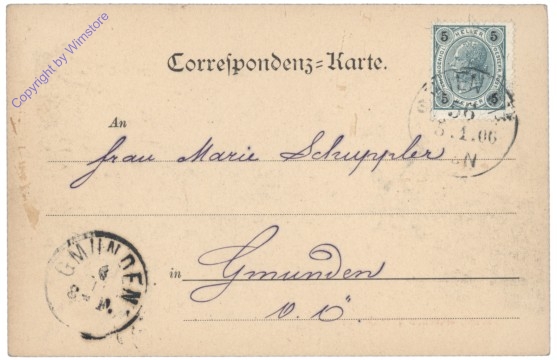 Copyright by Wimstore
Correspondenz=Karte.
5 HELLER 5
5 5
56
5.1.06
An
Frau Marie Schuppler
in Gmunden
O. Ö.
GMUNDEN
6
8-